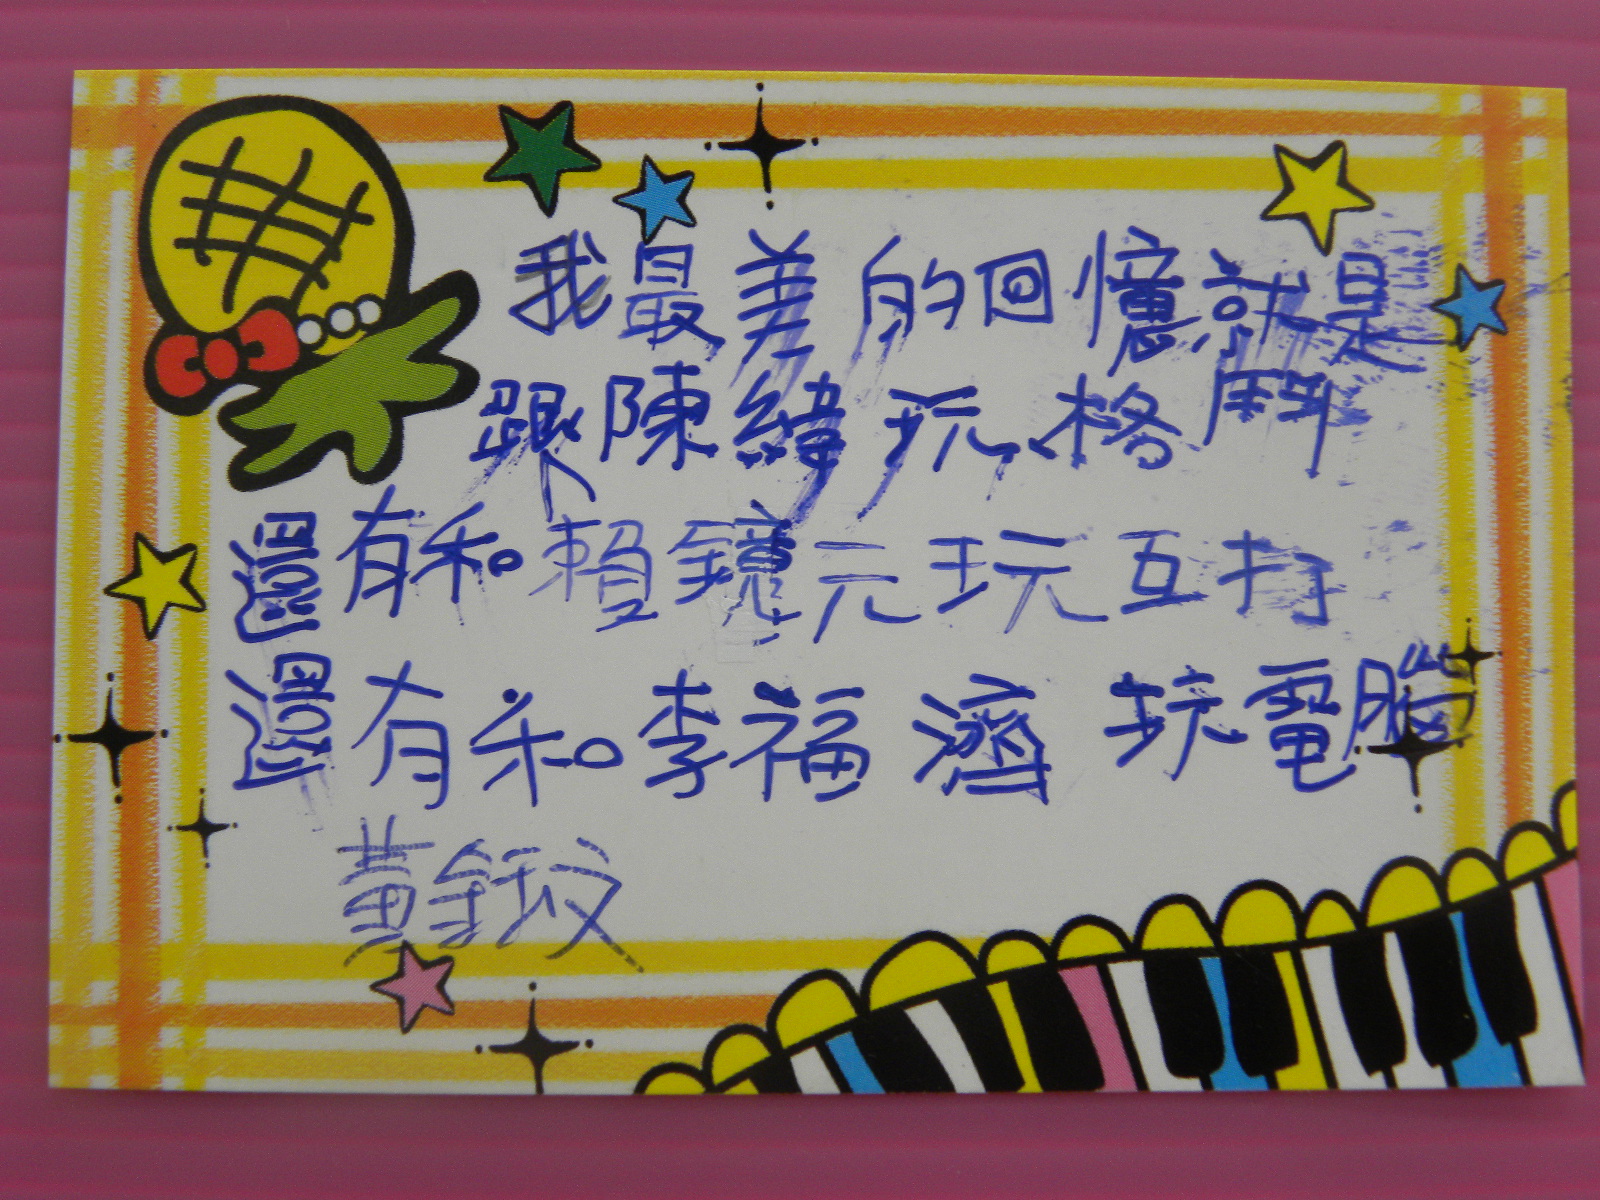 我最美的回憶就是
跟陳緯玩格鬥
還有和賴鏡元玩互打
還有和李福濟玩電腦
黃鈺玟